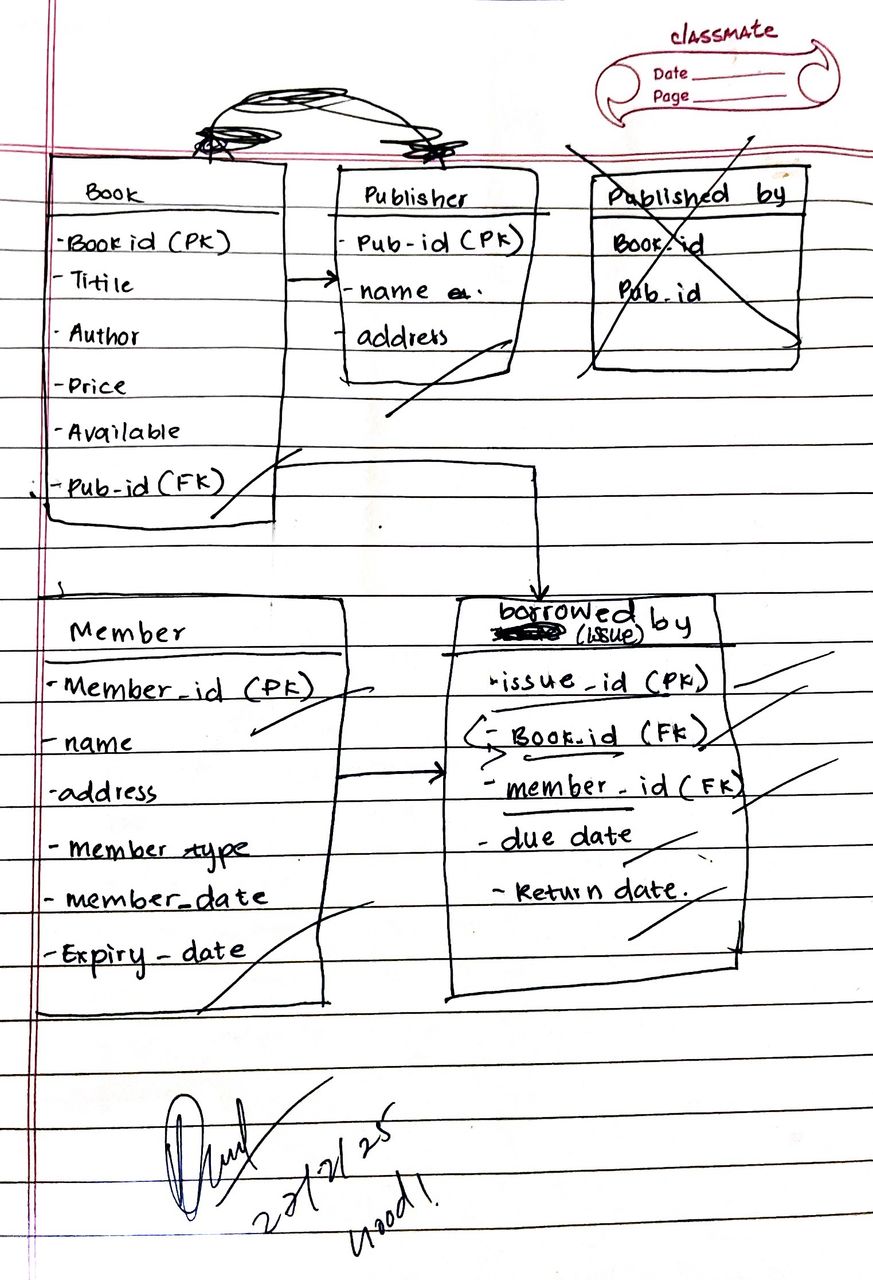 classmate
Date
Page
Book
- Book id (PK)
- Titile
- Author
- Price
- Available
- Pub-id (FK)
Publisher
- Pub-id (PK)
- name
- address
Published by
Book-id
Pub-id
Member
- Member_id (PK)
- name
- address
- member type
- member_date
- Expiry - date
borrowed by
(issue)
- issue_id (PK)
- Book_id (FK)
- member_id (FK)
- due date
- Return date.
Good!